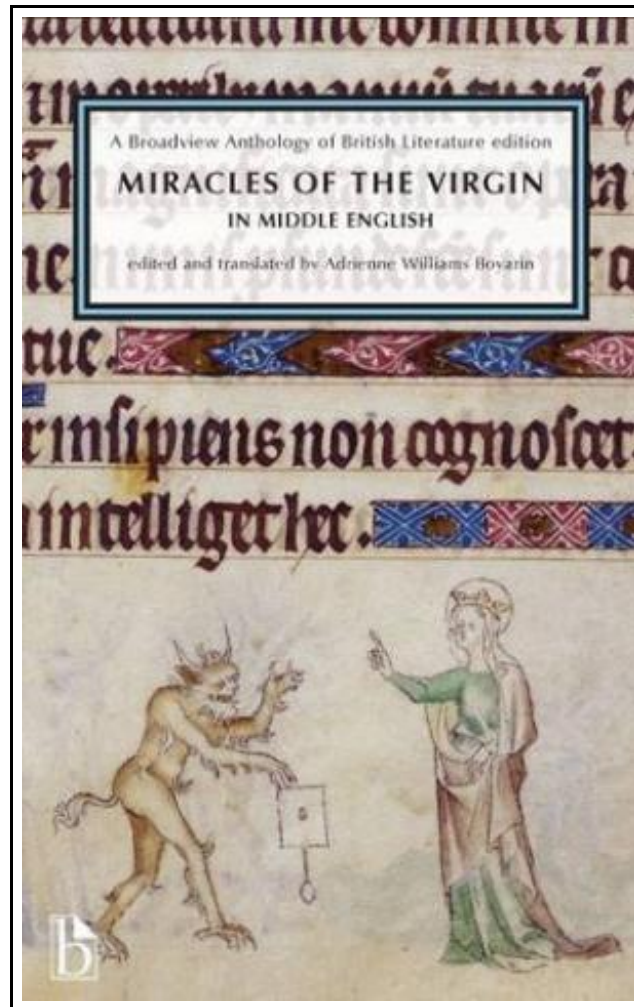 A Broadview Anthology of British Literature edition
MIRACLES OF THE VIRGIN
IN MIDDLE ENGLISH
edited and translated by Adrienne Williams Boyarin
tue.
r insipiens non cognoscet
intelliget hec.
b